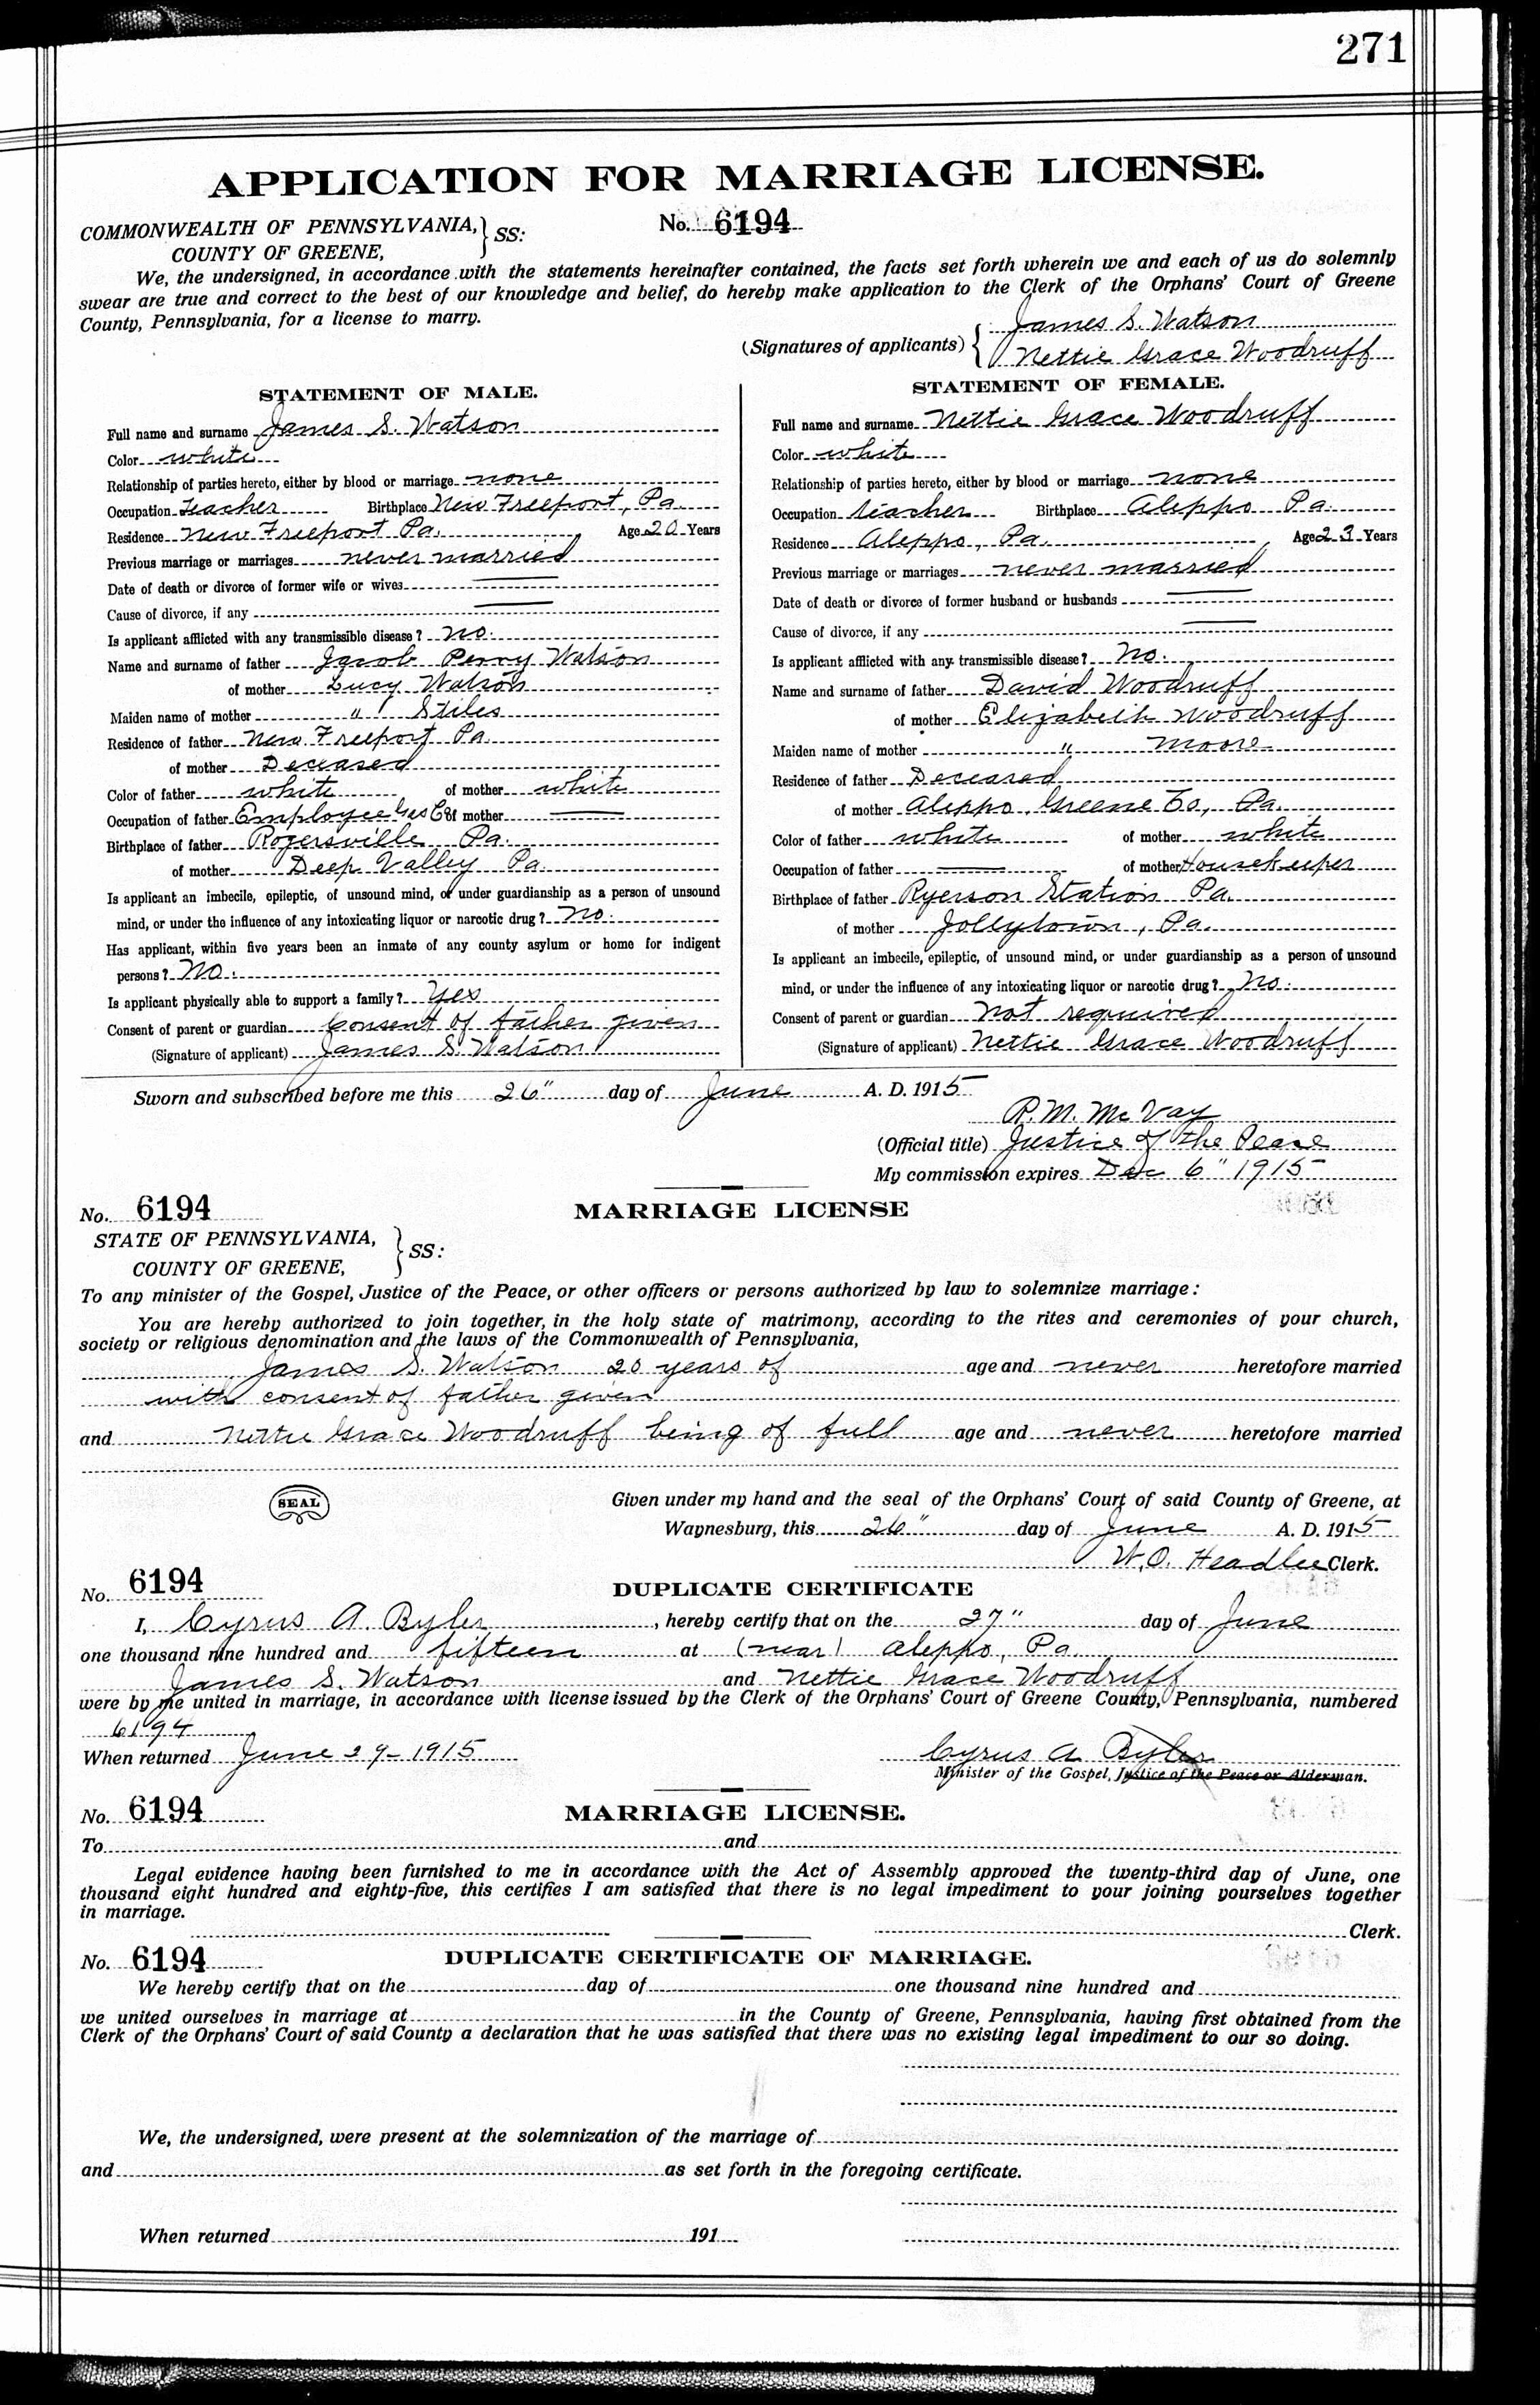 271
APPLICATION FOR MARRIAGE LICENSE.
COMMONWEALTH OF PENNSYLVANIA, } SS: No. 6194
COUNTY OF GREENE,
We, the undersigned, in accordance with the statements hereinafter contained, the facts set forth wherein we and each of us do solemnly
swear are true and correct to the best of our knowledge and belief, do hereby make application to the Clerk of the Orphans' Court of Greene
County, Pennsylvania, for a license to marry.
(Signatures of applicants) { James S. Watson
Nettie Grace Woodruff
STATEMENT OF MALE.
Full name and surname James S. Watson
Color white
Relationship of parties hereto, either by blood or marriage none
Occupation Teacher Birthplace New Freeport, Pa.
Residence New Freeport Pa. Age 20 Years
Previous marriage or marriages never married
Date of death or divorce of former wife or wives —
Cause of divorce, if any —
Is applicant afflicted with any transmissible disease? No.
Name and surname of father Jacob Perry Watson
of mother Lucy Watson
Maiden name of mother " Stiles
Residence of father New Freeport Pa.
of mother Deceased
Color of father white of mother white
Occupation of father Employee Gas Co of mother —
Birthplace of father Rogersville Pa.
of mother Deep Valley Pa.
Is applicant an imbecile, epileptic, of unsound mind, or under guardianship as a person of unsound
mind, or under the influence of any intoxicating liquor or narcotic drug? No.
Has applicant, within five years been an inmate of any county asylum or home for indigent
persons? No.
Is applicant physically able to support a family? Yes
Consent of parent or guardian Consent of father given
(Signature of applicant) James S. Watson
STATEMENT OF FEMALE.
Full name and surname Nettie Grace Woodruff
Color white
Relationship of parties hereto, either by blood or marriage none
Occupation teacher Birthplace Aleppo Pa.
Residence Aleppo, Pa. Age 23 Years
Previous marriage or marriages never married
Date of death or divorce of former husband or husbands —
Cause of divorce, if any —
Is applicant afflicted with any transmissible disease? No.
Name and surname of father David Woodruff
of mother Elizabeth Woodruff
Maiden name of mother " Moore
Residence of father Deceased
of mother Aleppo, Greene Co., Pa.
Color of father white of mother white
Occupation of father — of mother Housekeeper
Birthplace of father Ryerson Station Pa.
of mother Jollytown, Pa.
Is applicant an imbecile, epileptic, of unsound mind, or under guardianship as a person of unsound
mind, or under the influence of any intoxicating liquor or narcotic drug? No.
Consent of parent or guardian Not required
(Signature of applicant) Nettie Grace Woodruff
Sworn and subscribed before me this 26" day of June A. D. 1915
R. M. McVay
(Official title) Justice of the Peace
My commission expires Dec 6" 1915
No. 6194 MARRIAGE LICENSE
STATE OF PENNSYLVANIA, } SS:
COUNTY OF GREENE,
To any minister of the Gospel, Justice of the Peace, or other officers or persons authorized by law to solemnize marriage:
You are hereby authorized to join together, in the holy state of matrimony, according to the rites and ceremonies of your church,
society or religious denomination and the laws of the Commonwealth of Pennsylvania,
James S. Watson 20 years of age and never heretofore married
with consent of father given
and Nettie Grace Woodruff being of full age and never heretofore married
SEAL
Given under my hand and the seal of the Orphans' Court of said County of Greene, at
Waynesburg, this 26" day of June A. D. 1915
W. O. Headlee Clerk.
No. 6194 DUPLICATE CERTIFICATE
I, Cyrus A. Byler, hereby certify that on the 27" day of June
one thousand nine hundred and fifteen at (near) Aleppo, Pa.
James S. Watson and Nettie Grace Woodruff
were by me united in marriage, in accordance with license issued by the Clerk of the Orphans' Court of Greene County, Pennsylvania, numbered
6194
When returned June 29-1915 Cyrus A Byler
Minister of the Gospel, Justice of the Peace or Alderman.
No. 6194 MARRIAGE LICENSE.
To and
Legal evidence having been furnished to me in accordance with the Act of Assembly approved the twenty-third day of June, one
thousand eight hundred and eighty-five, this certifies I am satisfied that there is no legal impediment to your joining yourselves together
in marriage.
Clerk.
No. 6194 DUPLICATE CERTIFICATE OF MARRIAGE.
We hereby certify that on the day of one thousand nine hundred and
we united ourselves in marriage at in the County of Greene, Pennsylvania, having first obtained from the
Clerk of the Orphans' Court of said County a declaration that he was satisfied that there was no existing legal impediment to our so doing.
We, the undersigned, were present at the solemnization of the marriage of
and as set forth in the foregoing certificate.
When returned 191